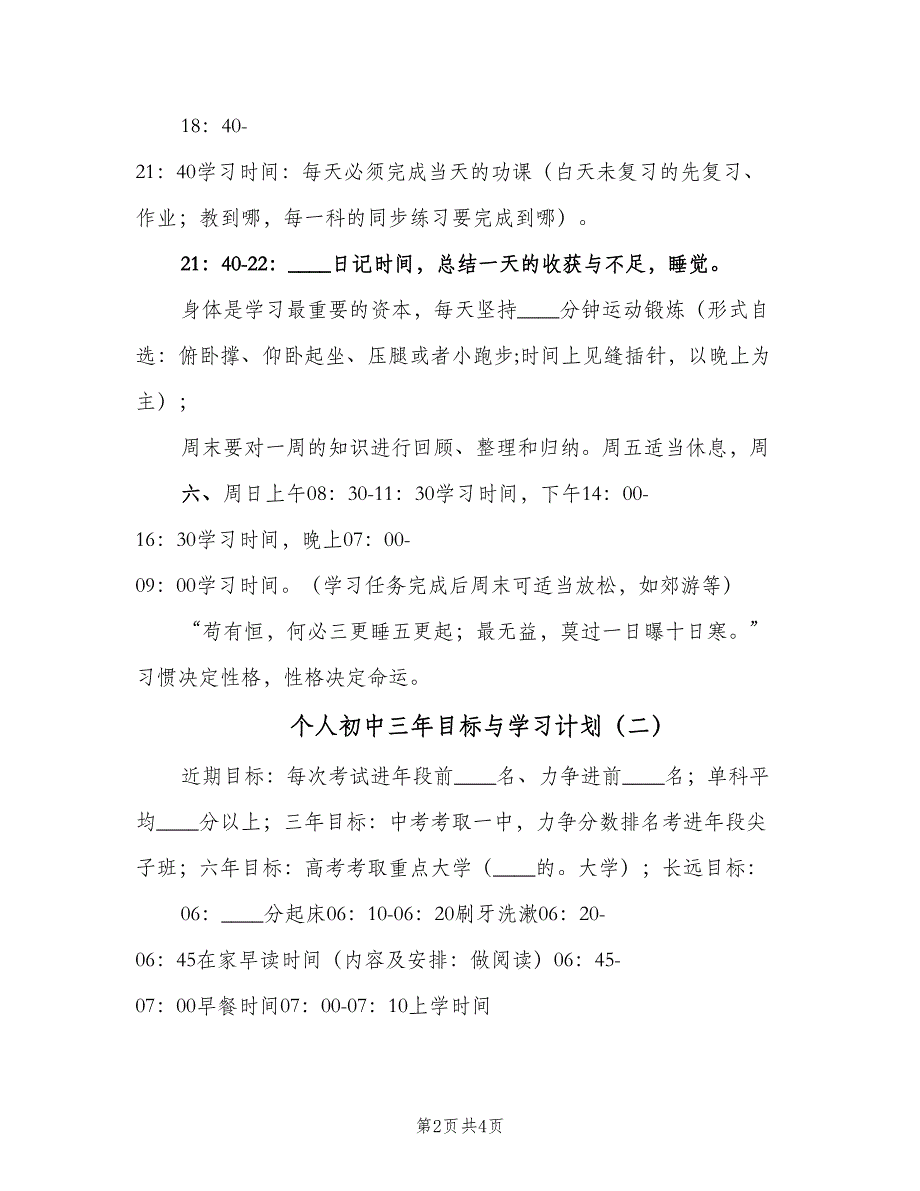 18：40-
21：40学习时间：每天必须完成当天的功课（白天未复习的先复习、
作业；教到哪，每一科的同步练习要完成到哪）。
21：40-22：____日记时间，总结一天的收获与不足，睡觉。
身体是学习最重要的资本，每天坚持____分钟运动锻炼（形式自
选：俯卧撑、仰卧起坐、压腿或者小跑步;时间上见缝插针，以晚上为
主）;
周末要对一周的知识进行回顾、整理和归纳。周五适当休息，周
六、周日上午08：30-11：30学习时间，下午14：00-
16：30学习时间，晚上07：00-
09：00学习时间。（学习任务完成后周末可适当放松，如郊游等）
“苟有恒，何必三更睡五更起；最无益，莫过一日曝十日寒。”
习惯决定性格，性格决定命运。
个人初中三年目标与学习计划（二）
近期目标：每次考试进年段前____名、力争进前____名；单科平
均____分以上；三年目标：中考考取一中，力争分数排名考进年段尖
子班；六年目标：高考考取重点大学（____的。大学）；长远目标：
06：____分起床06：10-06：20刷牙洗漱06：20-
06：45在家早读时间（内容及安排：做阅读）06：45-
07：00早餐时间07：00-07：10上学时间
第2页共4页